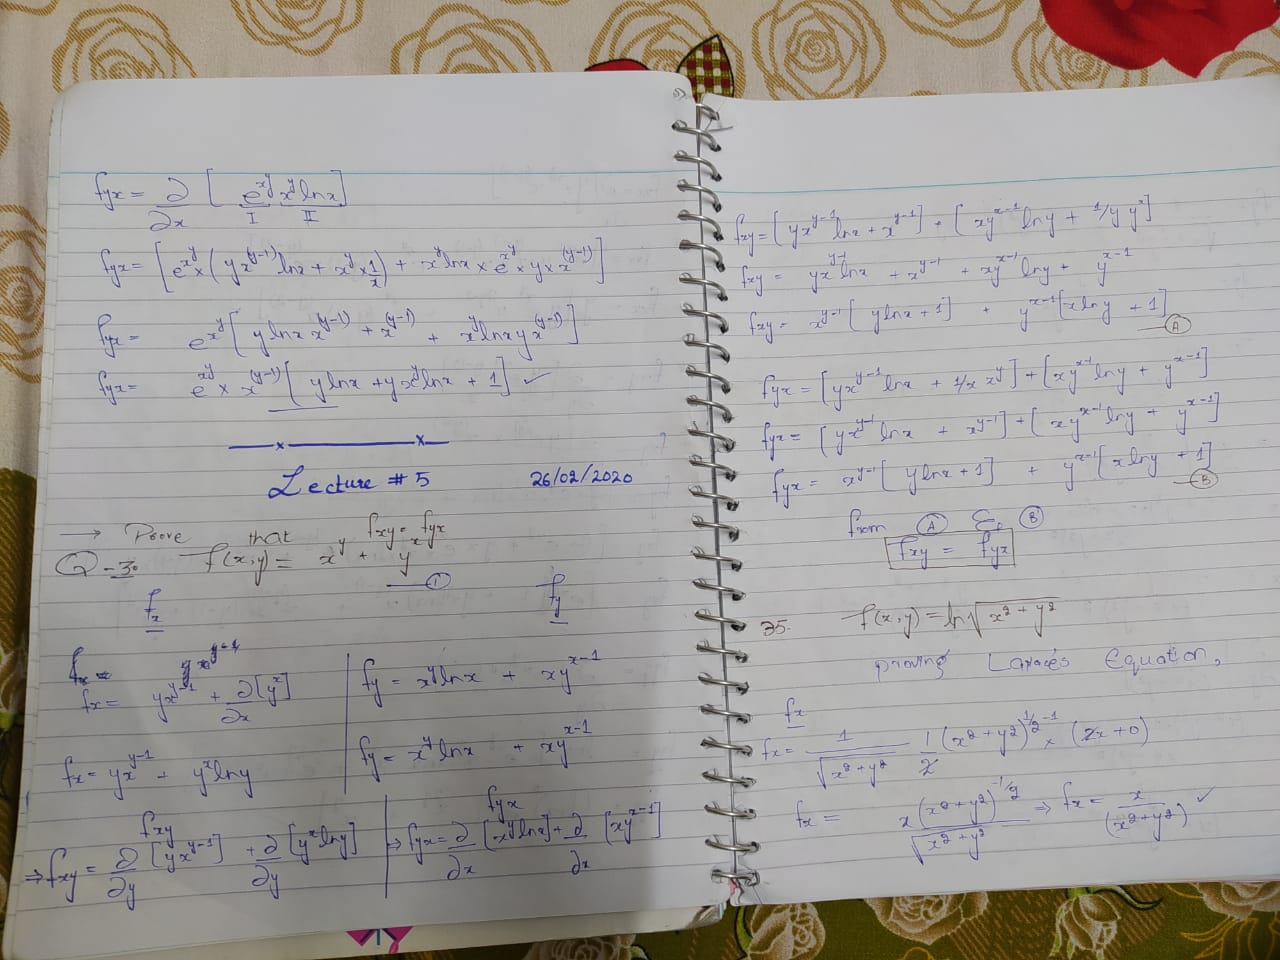 fyx = ∂/∂x [e^x^y x^y lnx]
I II
fyx = [e^x^y × (yx^(y-1) lnx + x^y × 1/x) + x^y lnx × e^x^y × y × x^(y-1)]
fyx = e^x^y [y lnx x^(y-1) + x^(y-1) + x^y lnx y x^(y-1)]
fyx = e^x^y × x^(y-1) [y lnx + y x^y lnx + 1] ✓
Lecture # 5 26/02/2020
→ Prove that fxy = fyx
Q-3. f(x,y) = x^y + y^x
①
fx fy
fx = yx^y-1
fx = yx^y-1 + ∂/∂x [y^x]
fx = yx^y-1 + y^x lny
fy = x^y lnx + xy^x-1
fy = x^y lnx + xy^x-1
fxy
⇒ fxy = ∂/∂y [yx^y-1] + ∂/∂y [y^x lny]
fyx
⇒ fyx = ∂/∂x [x^y lnx] + ∂/∂x [xy^x-1]
fxy = [yx^y-1 lnx + x^y-1] + [xy^x-1 lny + 1/y y^x]
fxy = yx^y-1 lnx + x^y-1 + xy^x-1 lny + y^x-1
fxy = x^y-1 [y lnx + 1] + y^x-1 [x lny + 1]
Ⓐ
fyx = [yx^y-1 lnx + 1/x x^y] + [xy^x-1 lny + y^x-1]
fyx = [yx^y-1 lnx + x^y-1] + [xy^x-1 lny + y^x-1]
fyx = x^y-1 [y lnx + 1] + y^x-1 [x lny + 1]
Ⓑ
from Ⓐ & Ⓑ
fxy = fyx
35. f(x,y) = ln√x²+y²
proving Laplace's Equation,
fx
fx = 1/√x²+y² 1/2 (x²+y²)^1/2-1 × (2x+0)
fx = x(x²+y²)^-1/2/√x²+y² ⇒ fx = x/(x²+y²) ✓